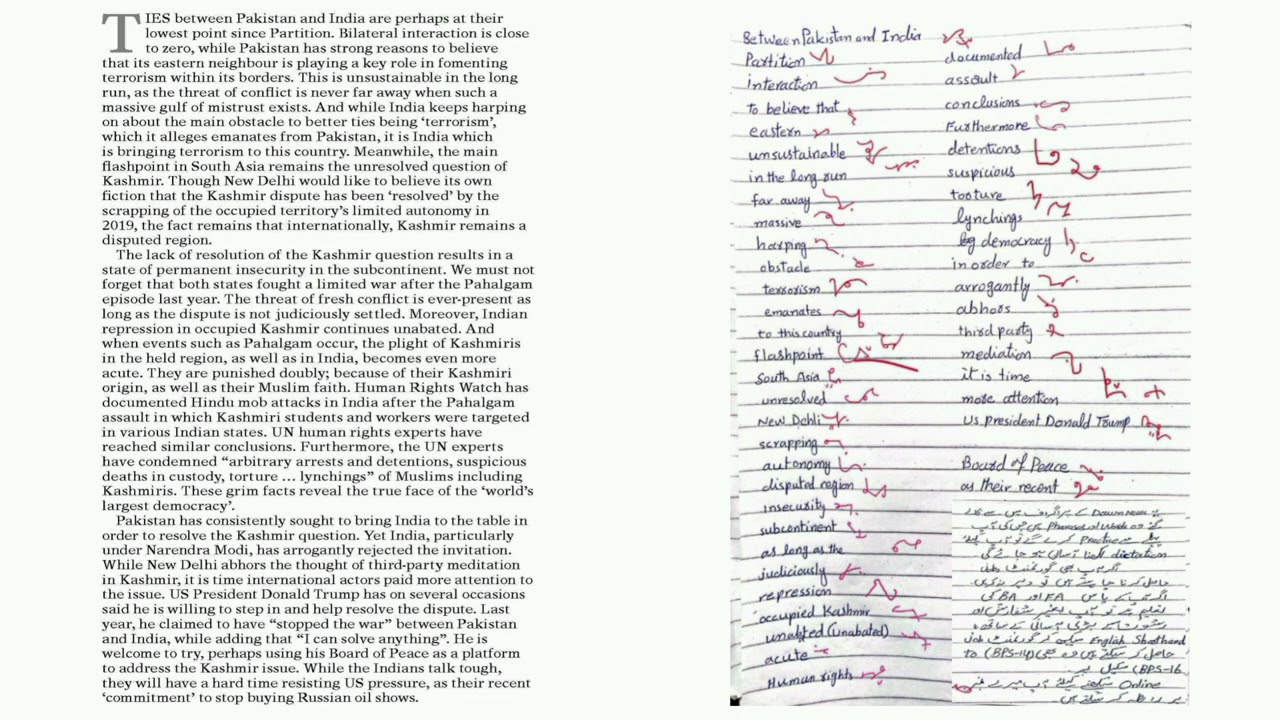 TIES between Pakistan and India are perhaps at their
lowest point since Partition. Bilateral interaction is close
to zero, while Pakistan has strong reasons to believe
that its eastern neighbour is playing a key role in fomenting
terrorism within its borders. This is unsustainable in the long
run, as the threat of conflict is never far away when such a
massive gulf of mistrust exists. And while India keeps harping
on about the main obstacle to better ties being ‘terrorism’,
which it alleges emanates from Pakistan, it is India which
is bringing terrorism to this country. Meanwhile, the main
flashpoint in South Asia remains the unresolved question of
Kashmir. Though New Delhi would like to believe its own
fiction that the Kashmir dispute has been ‘resolved’ by the
scrapping of the occupied territory’s limited autonomy in
2019, the fact remains that internationally, Kashmir remains a
disputed region.
The lack of resolution of the Kashmir question results in a
state of permanent insecurity in the subcontinent. We must not
forget that both states fought a limited war after the Pahalgam
episode last year. The threat of fresh conflict is ever-present as
long as the dispute is not judiciously settled. Moreover, Indian
repression in occupied Kashmir continues unabated. And
when events such as Pahalgam occur, the plight of Kashmiris
in the held region, as well as in India, becomes even more
acute. They are punished doubly; because of their Kashmiri
origin, as well as their Muslim faith. Human Rights Watch has
documented Hindu mob attacks in India after the Pahalgam
assault in which Kashmiri students and workers were targeted
in various Indian states. UN human rights experts have
reached similar conclusions. Furthermore, the UN experts
have condemned “arbitrary arrests and detentions, suspicious
deaths in custody, torture ... lynchings” of Muslims including
Kashmiris. These grim facts reveal the true face of the ‘world’s
largest democracy’.
Pakistan has consistently sought to bring India to the table in
order to resolve the Kashmir question. Yet India, particularly
under Narendra Modi, has arrogantly rejected the invitation.
While New Delhi abhors the thought of third-party meditation
in Kashmir, it is time international actors paid more attention to
the issue. US President Donald Trump has on several occasions
said he is willing to step in and help resolve the dispute. Last
year, he claimed to have “stopped the war” between Pakistan
and India, while adding that “I can solve anything”. He is
welcome to try, perhaps using his Board of Peace as a platform
to address the Kashmir issue. While the Indians talk tough,
they will have a hard time resisting US pressure, as their recent
‘commitment’ to stop buying Russian oil shows.
Between Pakistan and India
Partition
interaction
to believe that
eastern
unsustainable
in the long run
far away
massive
harping
obstacle
terrorism
emanates
to this country
flashpoint
South Asia
unresolved
New Dehli
scrapping
autonomy
disputed region
insecurity
subcontinent
as long as the
judiciously
repression
occupied Kashmir
unabted (unabated)
acute
Human rights
documented
assault
conclusions
Furthermore
detentions
suspicious
torture
lynchings
democracy
in order to
arrogantly
abhors
third party
mediation
it is time
more attention
US president Donald Trump
Board of Peace
as their recent
Dawn News
Phrases
Practice
dictation
FA اور BA کی
English Shorthand
(BPS-14) to
(BPS-16
Online